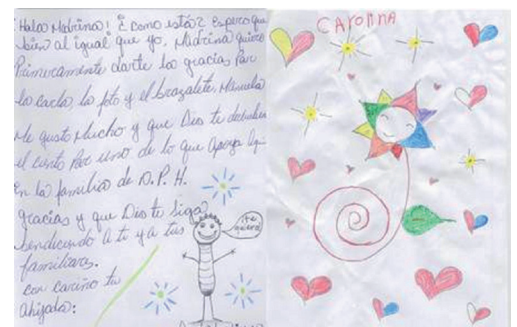 Haloo Madrina! ¿Como estás? espero que
bien al igual que yo, Madrina quiero
Primeramente darte las gracias Por
la carta la foto y el brazalete, Manuela
Me gusto Mucho y que Dios te
el Por uno de lo que Apoya
En la familia de N.P.H.
gracias y que Dios te siga
bendiciendo a ti y a tus
familiares.
con cariño tu
Ahijada:
¡te quiero!
CAROLINA